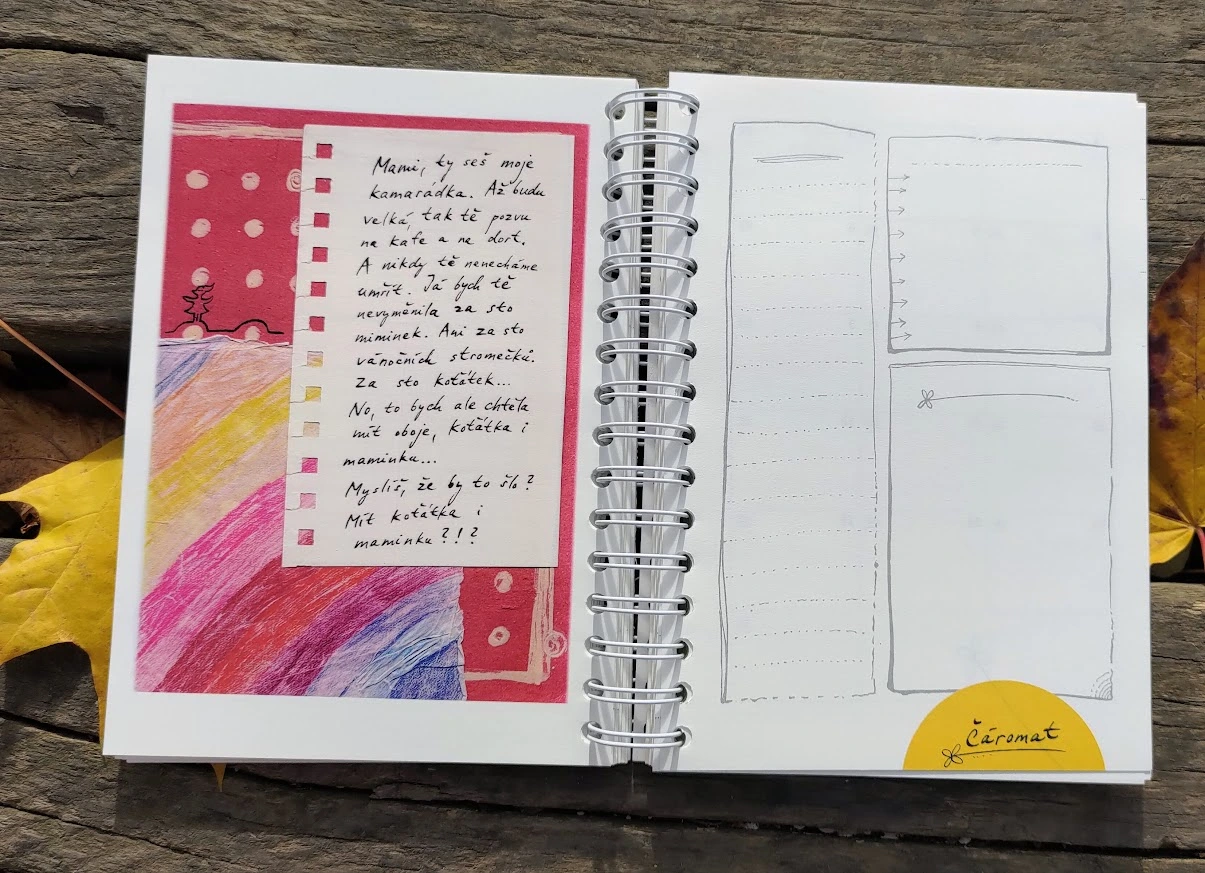 Mami, ty seš moje
kamarádka. Až budu
velká, tak tě pozvu
na kafe a na dort.
A nikdy tě nenecháme
umřít. Já bych tě
nevyměnila za sto
miminek. Ani za sto
vánočních stromečků.
Za sto koťátek...
No, to bych ale chtěla
mít oboje, koťátka i
maminku...
Myslíš, že by to šlo?
Mít koťátka i
maminku?!?
Čáromat